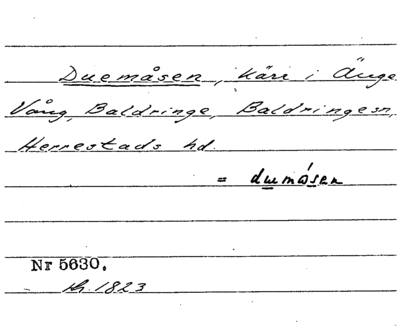 Duemåsen, kärr i Änge
Vång, Baldringe, Baldringesn,
Herrestads hd.
= dumåsen
Nr 5630.
1823